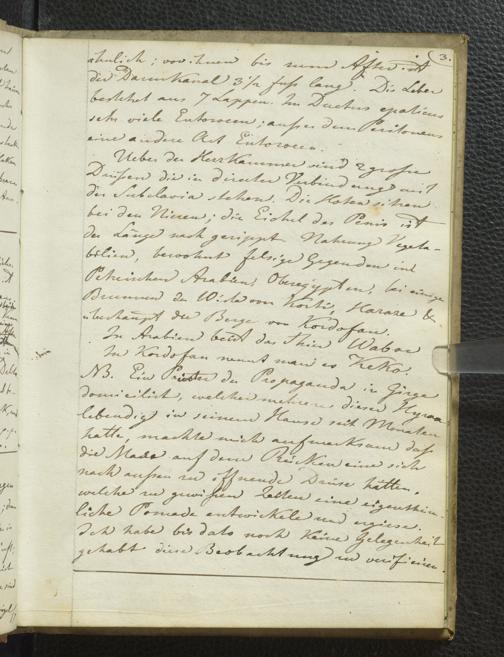 3.
ähnlich; von ihnen bis zum After ist
der Darmkanal 3 1/2 fuss lang. Die Leber
bestehet aus 7 Lappen. Im Ductus epaticus
sehr viele Entozoeen; ausser dem Peritoneus
eine andere Art Entozoeen.
Ueber der Herzkammer sind 2 grosse
Drüsen die in directer Verbindung mit
der Subclavia stehen. Die Hoten sitzen
bei den Nieren; die Eichel des Penis ist
der Länge nach gerippt. Nahrung Vegeta-
bilien, bewohnt felsige Gegenden im
Peträischen Arabien, Oberegypten, bei einige
Brunnen der Wüste von Korti, Haraze &
überhaupt der Berge von Kordofan.
In Arabien heist das Thier Wabar
In Kordofan nennt man es Keko.
NB. Ein Priester der Propaganda in Girge
domicilirt, welcher mehrere dieser Hyrax
lebendig in seinem Hause seit Monaten
hatte, machte mich aufmerksam dass
die Male auf dem Rücken eine sich
nach aussen zu öffnende Drüse hätten,
welche zu gewissen Zeiten eine eigenthüm-
liche Pomade entwickele und ergiese.
Ich habe bis dato noch keine Gelegenheit
gehabt diese Beobachtung zu verificiren.